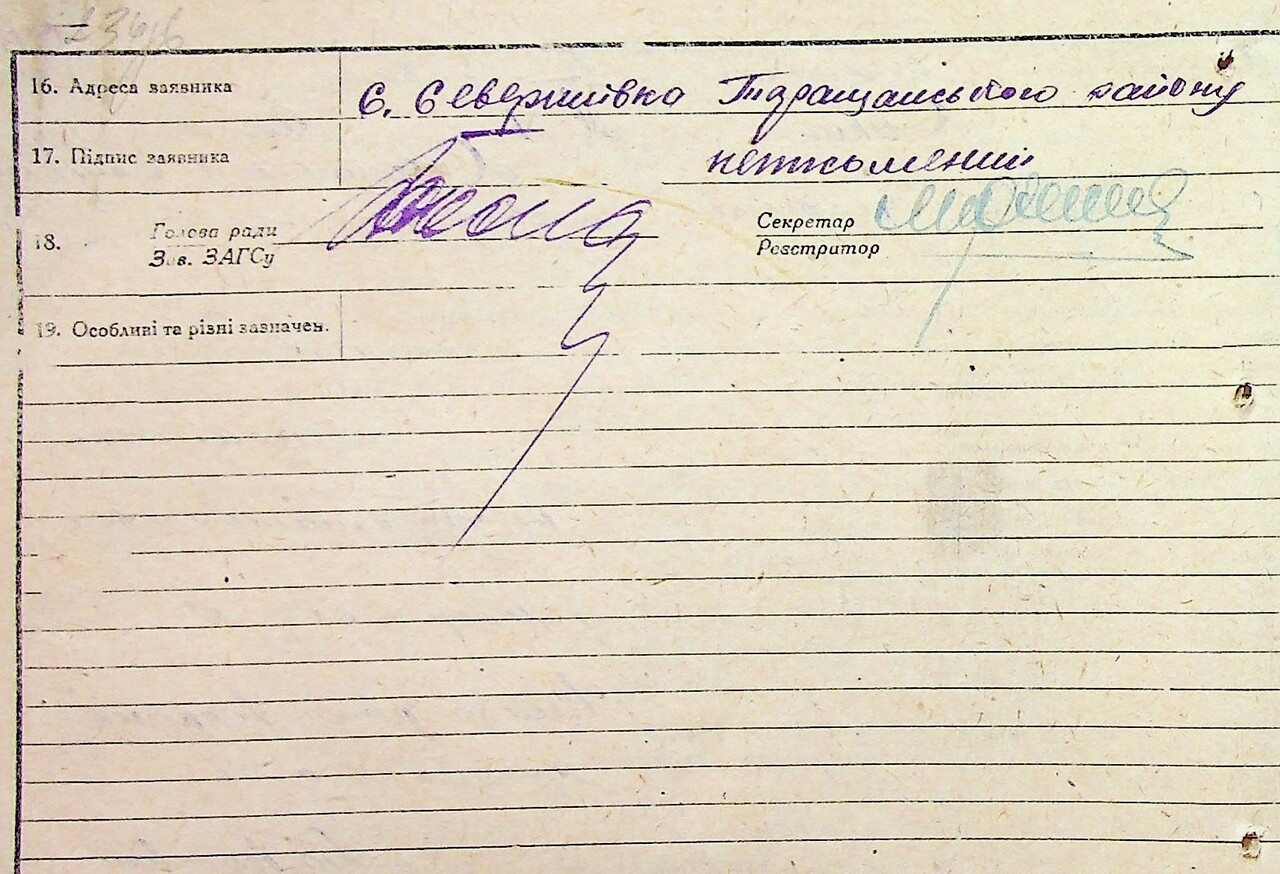 16. Адреса заявника с. Северинівка Таращанського району
17. Підпис заявника неписьмений
18. Голова ради
Зав. ЗАГСу
Секретар
Реєстратор
19. Особливі та різні зазначен.